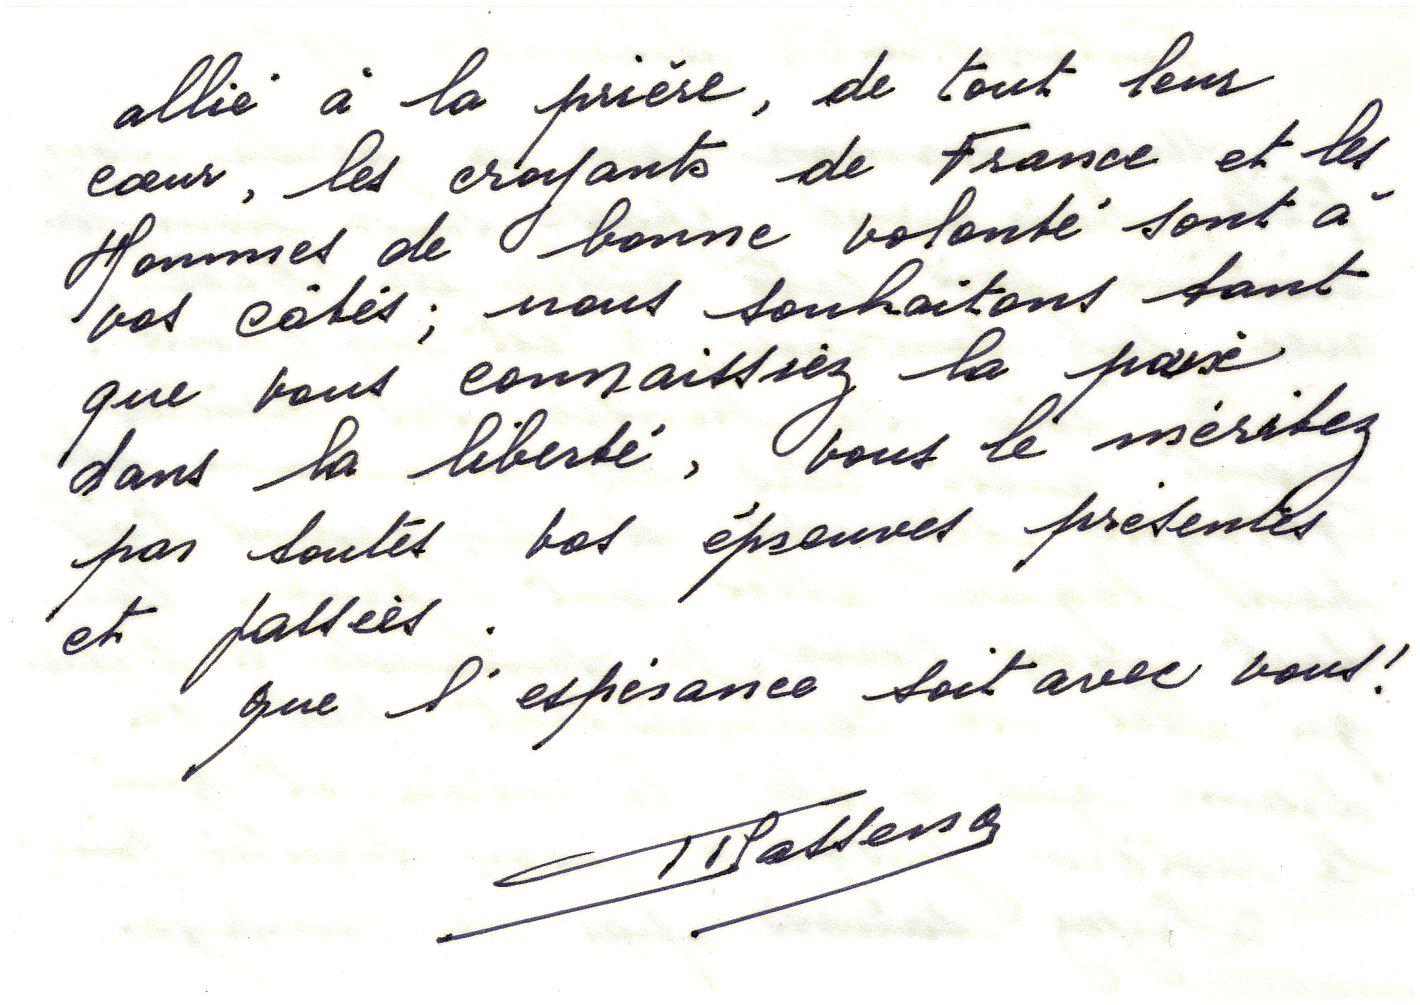 allié à la prière, de tout leur
cœur, les croyants de France et les
Hommes de bonne volonté sont à
vos côtés; nous souhaitons tant
que vous connaissiez la paix
dans la liberté, vous le méritez
par toutes vos épreuves présentes
et passées.
que l'espérance soit avec vous!